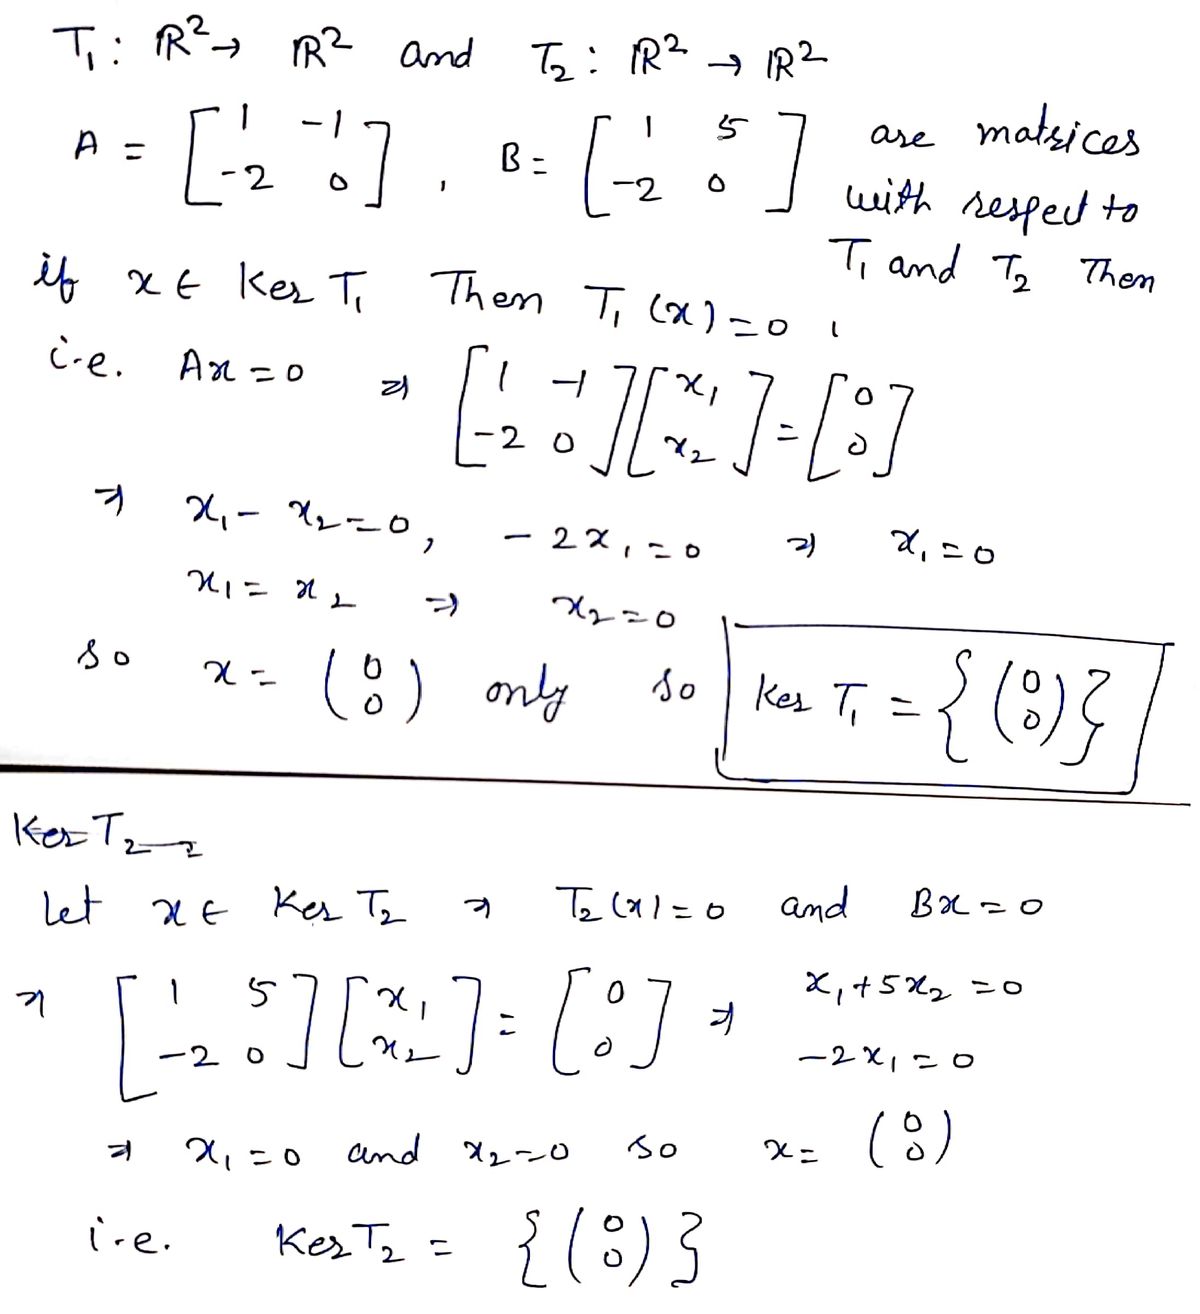 T₁ : ℝ² → ℝ² and T₂ : ℝ² → ℝ²
A = [1 -1; -2 0], B = [1 5; -2 0] are matrices
with respect to
T₁ and T₂ Then
if x ∈ Ker T₁ Then T₁(x) = 0,
i.e. Ax = 0 ⇒ [1 -1; -2 0][x₁; x₂] = [0; 0]
⇒ x₁ - x₂ = 0, -2x₁ = 0 ⇒ x₁ = 0
x₁ = x₂ ⇒ x₂ = 0
so x = (0; 0) only so Ker T₁ = {(0; 0)}
Ker T₂
Let x ∈ Ker T₂ ⇒ T₂(x) = 0 and Bx = 0
⇒ [1 5; -2 0][x₁; x₂] = [0; 0] ⇒ x₁ + 5x₂ = 0
-2x₁ = 0
⇒ x₁ = 0 and x₂ = 0 so x = (0; 0)
i.e. Ker T₂ = {(0; 0)}